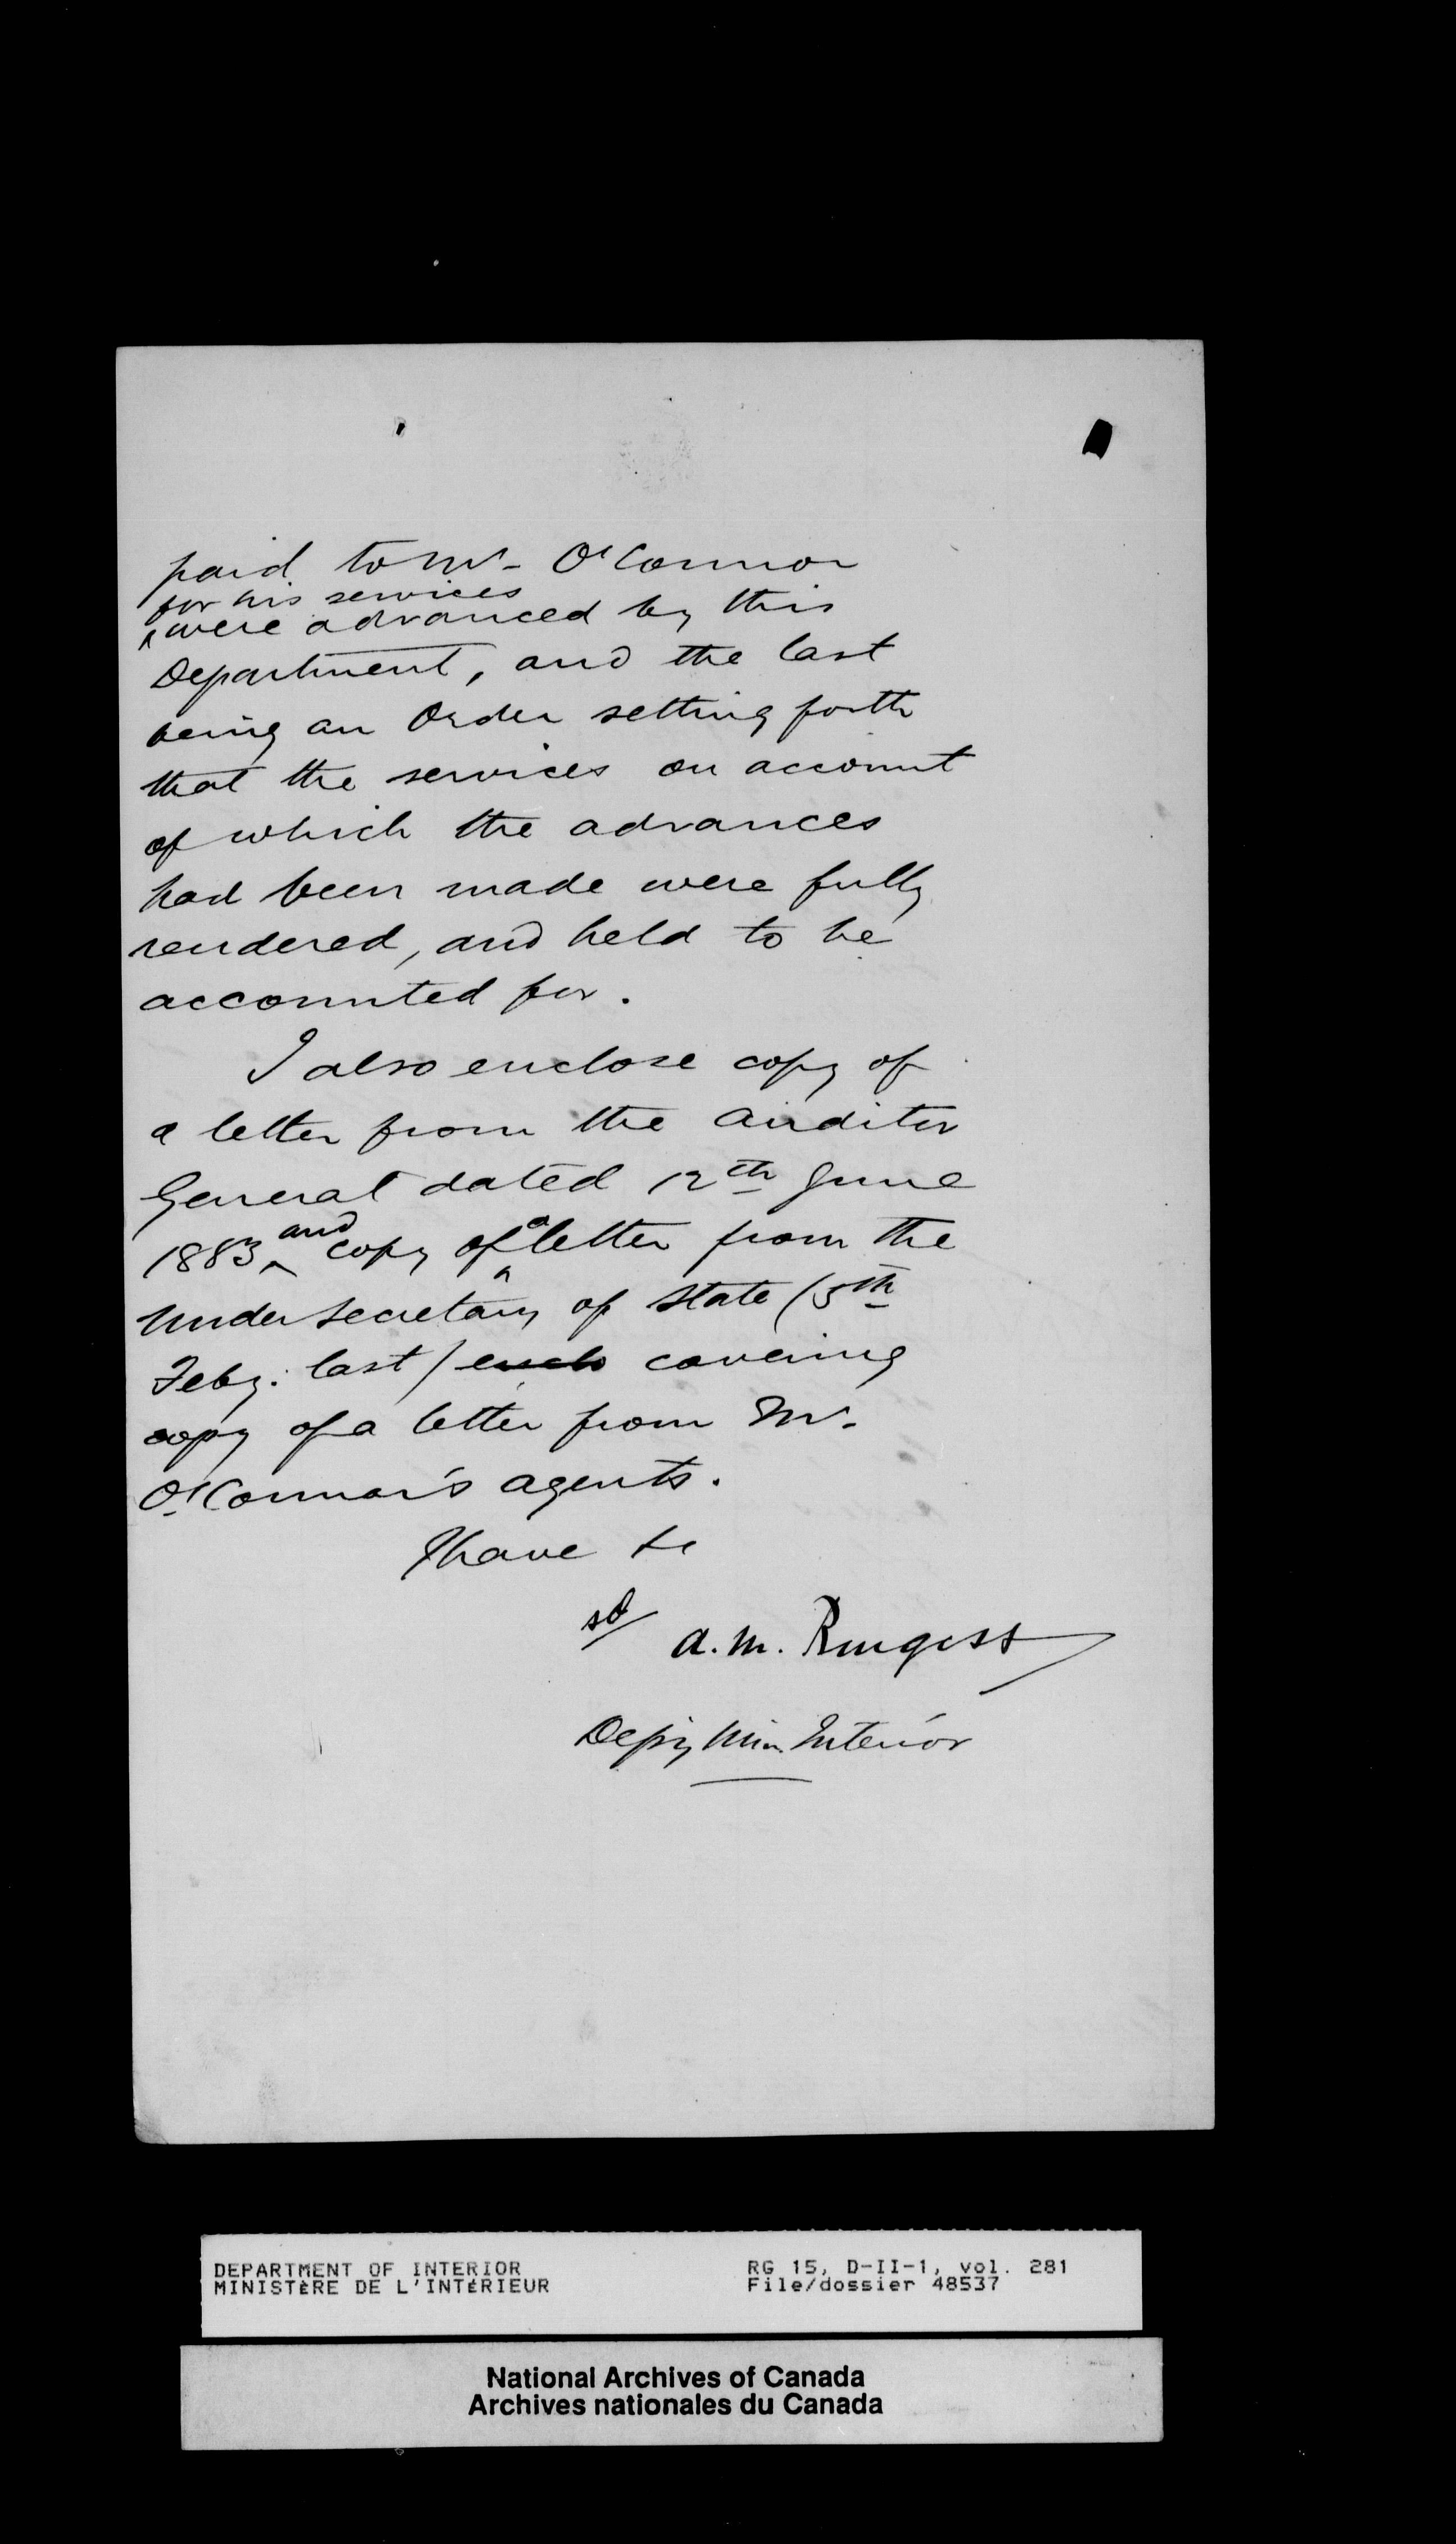 paid to Mr. O'Connor
for his services
were advanced by this
Department, and the last
being an Order setting forth
that the services on account
of which the advances
had been made were fully
rendered, and held to be
accounted for.
I also enclose copy of
a letter from the Auditor
General dated 12th June
1883, and copy of a letter from the
Under Secretary of State (5th
Feby. last) covering
copy of a letter from Mr.
O'Connor's agents.
I have &c
sd/ A. M. Burgess
Depy Min. Interior
DEPARTMENT OF INTERIOR
MINISTÈRE DE L'INTÉRIEUR
RG 15, D-II-1, vol. 281
File/dossier 48537
National Archives of Canada
Archives nationales du Canada